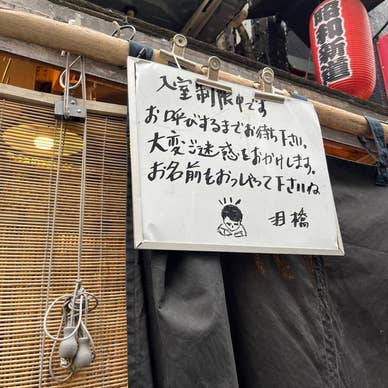 昭和新道
入室制限中です
お呼びするまでお待ち下さい。
大変ご迷惑をおかけします。
お名前をおっしゃって下さいね
橋